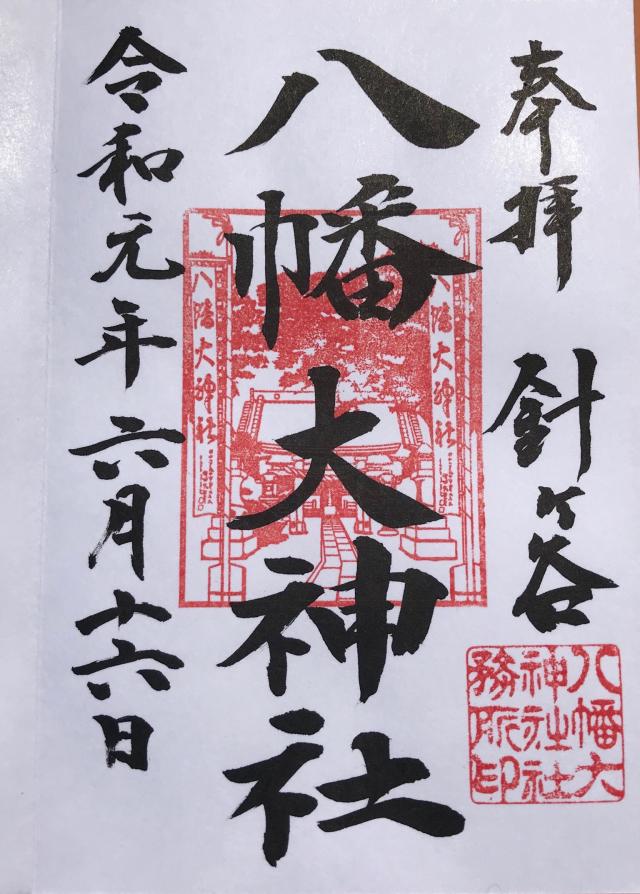 奉拝 針ヶ谷
八幡大神社
令和元年六月十六日
八幡大神社
八幡大神社
八幡大
神社社
務所印